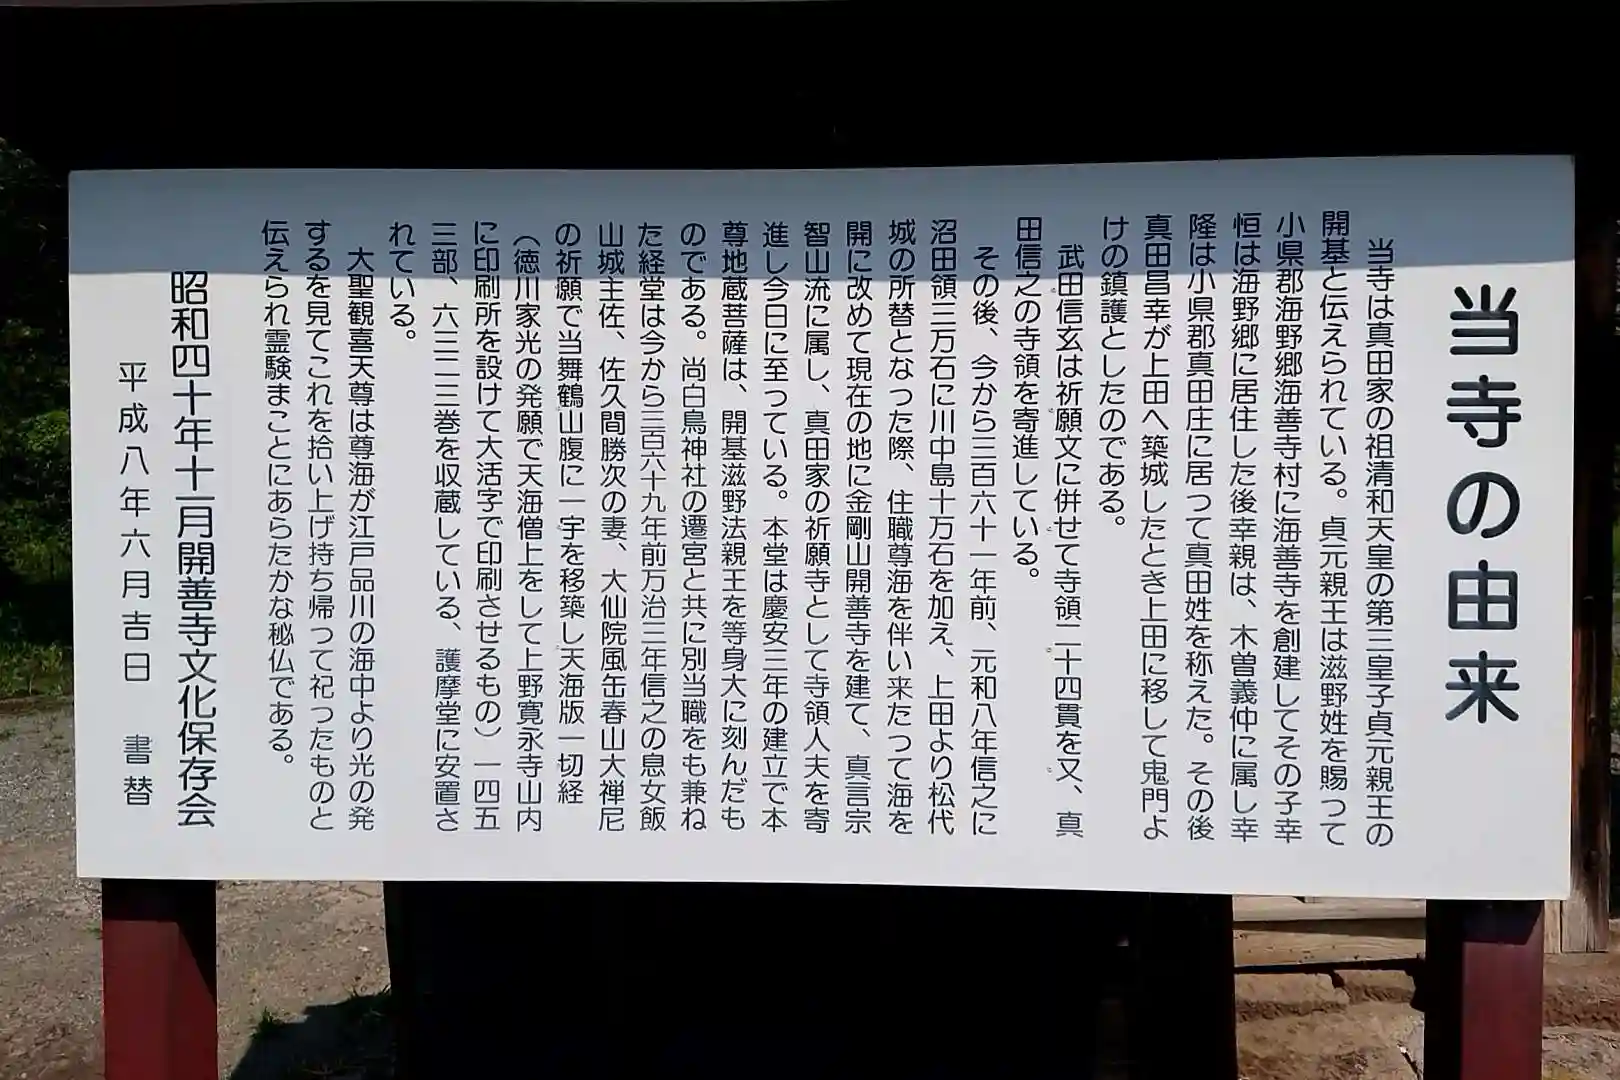 当寺の由来
当寺は真田家の祖清和天皇の第三皇子貞元親王の
開基と伝えられている。貞元親王は滋野姓を賜って
小県郡海野郷海善寺村に海善寺を創建してその子幸
恒は海野郷に居住した後幸親は、木曽義仲に属し幸
隆は小県郡真田庄に居って真田姓を称えた。その後
真田昌幸が上田へ築城したとき上田に移して鬼門よ
けの鎮護としたのである。
武田信玄は祈願文に併せて寺領二十四貫を又、真
田信之の寺領を寄進している。
その後、今から三百六十一年前、元和八年信之に
沼田領三万石に川中島十万石を加え、上田より松代
城の所替となった際、住職尊海を伴い来たって海を
開に改めて現在の地に金剛山開善寺を建て、真言宗
智山流に属し、真田家の祈願寺として寺領人夫を寄
進し今日に至っている。本堂は慶安三年の建立で本
尊地蔵菩薩は、開基滋野法親王を等身大に刻んだも
のである。尚白鳥神社の遷宮と共に別当職をも兼ね
た経堂は今から三百六十九年前万治三年信之の息女飯
山城主佐、佐久間勝次の妻、大仙院風缶春山大禅尼
の祈願で当舞鶴山腹に一宇を移築し天海版一切経
（徳川家光の発願で天海僧上をして上野寛永寺山内
に印刷所を設けて大活字で印刷させるもの）一四五
三部、六三二三巻を収蔵している、護摩堂に安置さ
れている。
大聖観喜天尊は尊海が江戸品川の海中より光の発
するを見てこれを拾い上げ持ち帰って祀ったものと
伝えられ霊験まことにあらたかな秘仏である。
昭和四十年十一月開善寺文化保存会
平成八年六月吉日　書替